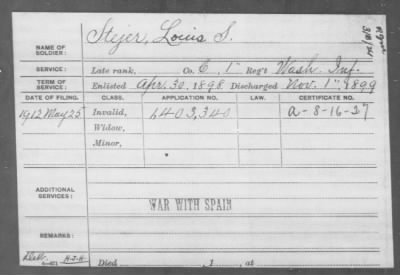 NAME OF SOLDIER: Steyer, Louis S.
SERVICE: Late rank, Co. C, 1" Reg't Wash Inf.
TERM OF SERVICE: Enlisted Apr. 30, 1898, Discharged Nov. 1", 1899
DATE OF FILING. CLASS. APPLICATION NO. LAW. CERTIFICATE NO.
1912 May 25 Invalid, 1403,340 A-8-16-27
Widow,
Minor,
ADDITIONAL SERVICES:
WAR WITH SPAIN
REMARKS:
Died , 1 , at
H-J-H-